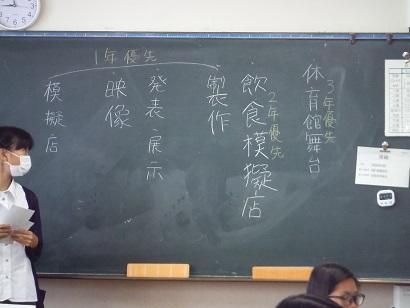 体育館舞台
3年優先
飲食模擬店
2年優先
製作
発表・展示
映像
模擬店
1年優先